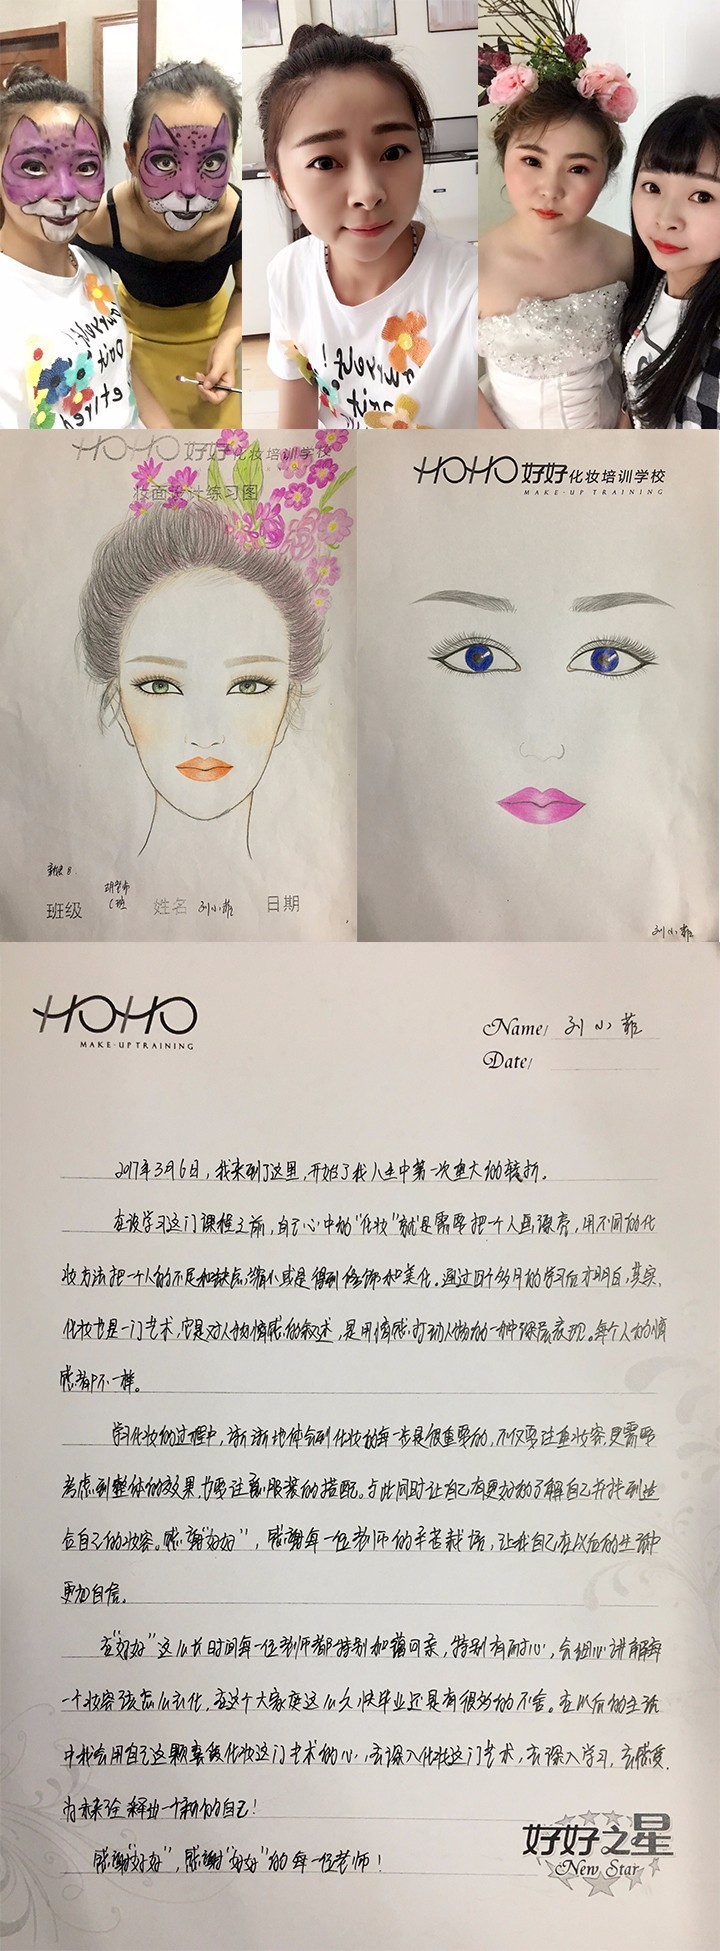 HOHO 好好化妆培训学校
妆面设计练习图
班级 C班 姓名 刘小菲 日期
HOHO 好好化妆培训学校
MAKE-UP TRAINING
刘小菲
HOHO
MAKE-UP TRAINING
Name/ 刘小菲
Date/
2017年3月6日，我来到了这里，开始了我人生中第一次重大的转折。
在没学习这门课程之前，自己心中的“化妆”就是需要把一个人画漂亮，用不同的化
妆方法把一个人的不足和缺点缩小或是得到修饰和美化。通过四个多月的学习后才明白，其实
化妆也是一门艺术，它是对人物情感的叙述，是用情感打动人物的一种深层表现。每个人的情
感都不一样。
学习化妆的过程中，渐渐地体会到化妆的每一步是很重要的，不仅要注重妆容，更需要
考虑到整体的效果，也要注意服装的搭配。与此同时让自己有更好的了解自己并找到适
合自己的妆容。感谢“好好”，感谢每一位老师的辛苦栽培，让我自己在以后的生活中
更加自信。
在“好好”这么长时间每一位老师都特别和蔼可亲，特别有耐心，会细心讲解每
一个妆容该怎么去化，在这个大家庭这么久快毕业还是有很多的不舍。在以后的生活
中我会用自己这颗喜欢化妆这门艺术的心，去深入化妆这门艺术，去深入学习，去感受，
为未来诠释出一个新的自己！
感谢“好好”，感谢“好好”的每一位老师！
好好之星
New Star